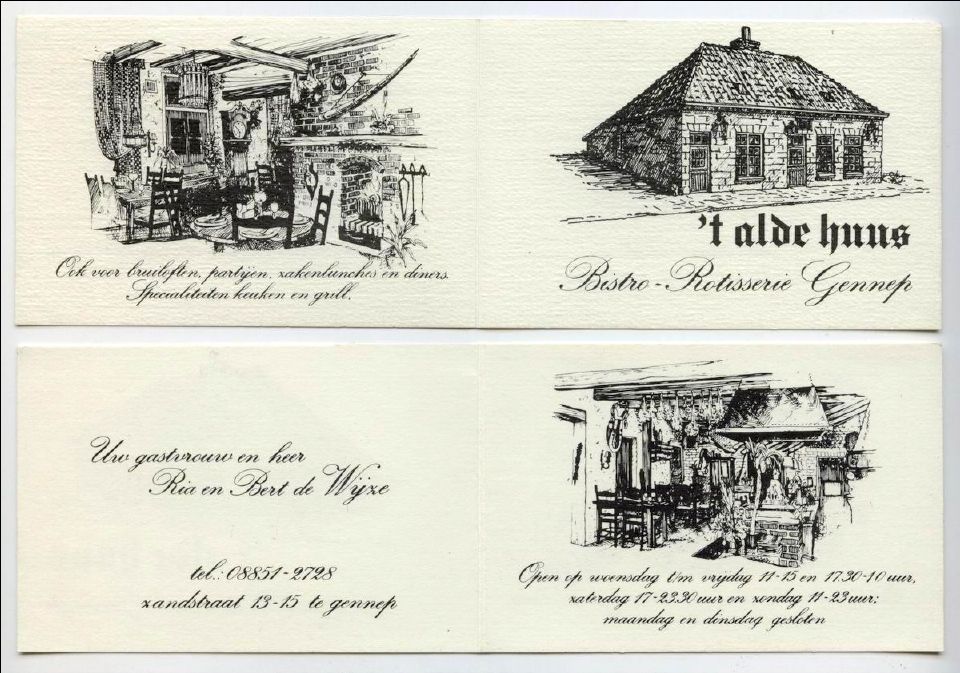 Ook voor bruiloften, partijen, zakenlunches en diners.
Specialiteiten keuken en grill.
't alde huus
Bistro - Rotisserie Gennep
Uw gastvrouw en heer
Ria en Bert de Wijze
tel.: 08851-2728
zandstraat 13-15 te gennep
Open op woensdag t/m vrijdag 11-15 en 17.30-10 uur,
zaterdag 17-23.30 uur en zondag 11-23 uur;
maandag en dinsdag gesloten